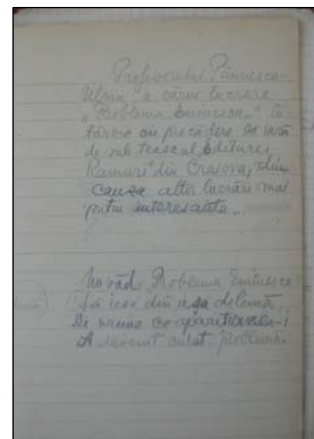 Profesorului Pănăescu-
a cărui lucrare
„Problema Eminescu" în-
târzie cu precădere să iasă
de sub teascul Editurei
Ramuri" din Craiova, din
cauza altor lucrări mai
puțin interesante...
Nu văd Problema Eminescu
să iese din a sa dilemă
De vreme ce apariția ei
A devenit astăzi problemă.